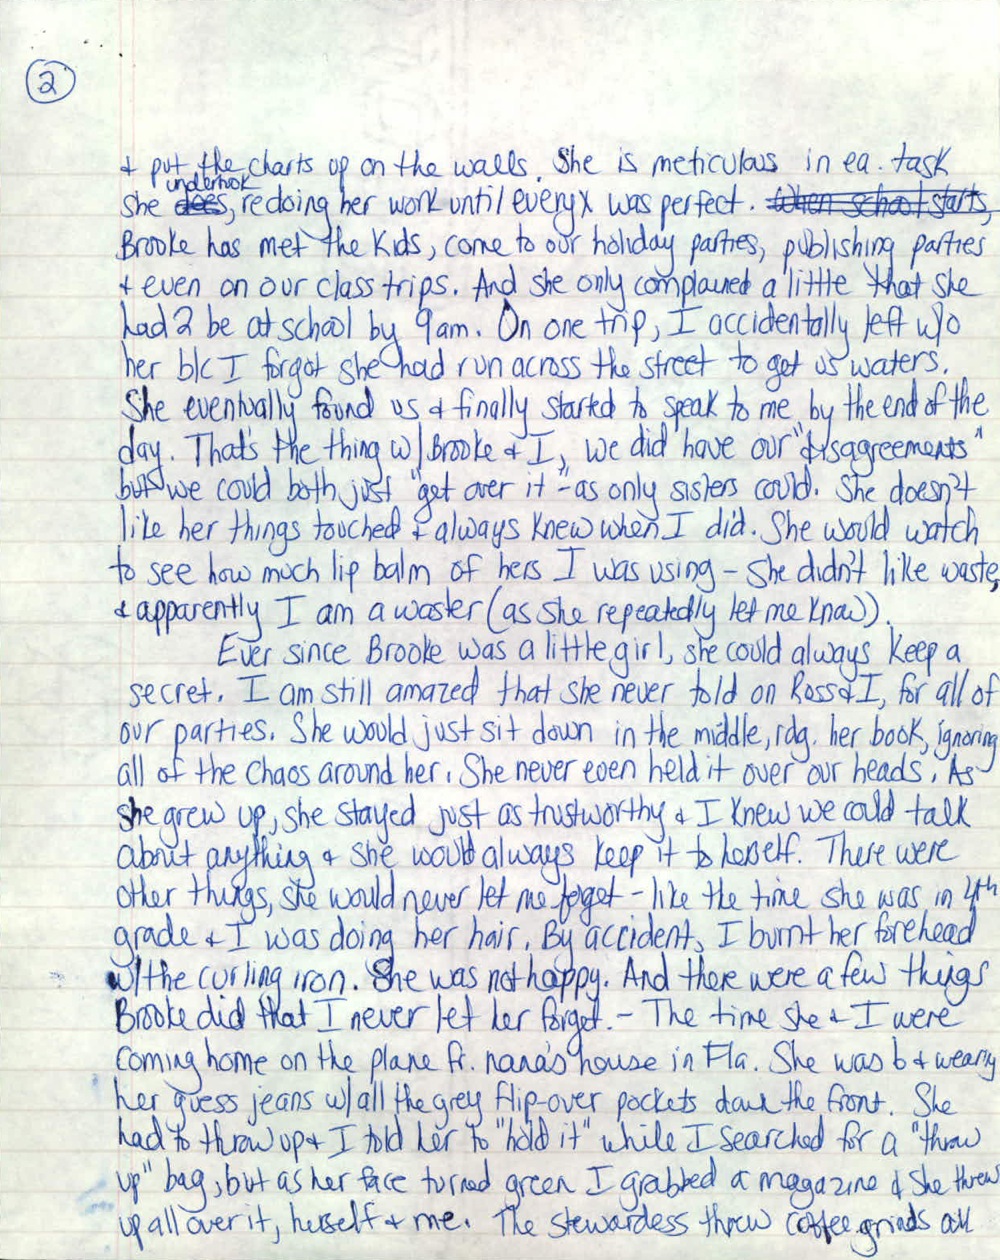 2
& put the charts up on the walls. She is meticulous in ea. task
undertook
she does, redoing her work until everyx was perfect. When school starts,
Brooke has met the kids, come to our holiday parties, publishing parties
& even on our class trips. And she only complained a little that she
had 2 be at school by 9am. On one trip, I accidentally left w/o
her b/c I forgot she had run across the street to get us waters.
She eventually found us & finally started to speak to me by the end of the
day. That's the thing w/ Brooke & I, we did have our "disagreements"
but we could both just "get over it" - as only sisters could. She doesn't
like her things touched & always knew when I did. She would watch
to see how much lip balm of hers I was using - she didn't like waste,
& apparently I am a waster (as she repeatedly let me know).
Ever since Brooke was a little girl, she could always keep a
secret. I am still amazed that she never told on Ross & I, for all of
our parties. She would just sit down in the middle, rdg. her book, ignoring
all of the chaos around her. She never even held it over our heads. As
she grew up, she stayed just as trustworthy & I knew we could talk
about anything & she would always keep it to herself. There were
other things, she would never let me forget - like the time she was in 4th
grade & I was doing her hair. By accident, I burnt her forehead
w/ the curling iron. She was not happy. And there were a few things
Brooke did that I never let her forget. - The time she & I were
coming home on the plane fr. nana's house in Fla. She was 6 & wearing
her guess jeans w/ all the grey flip-over pockets down the front. She
had to throw up & I told her to "hold it" while I searched for a "throw
up" bag, but as her face turned green I grabbed a magazine & she threw
up all over it, herself & me. The stewardess threw coffee grinds all